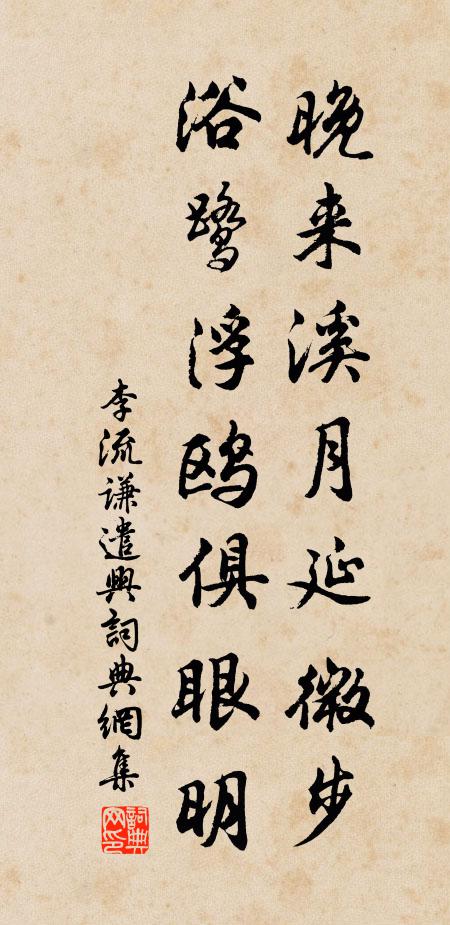 晚来溪月延微步
浴鹭浮鸥俱眼明
李流謙遣興詞典網集
詞典网印